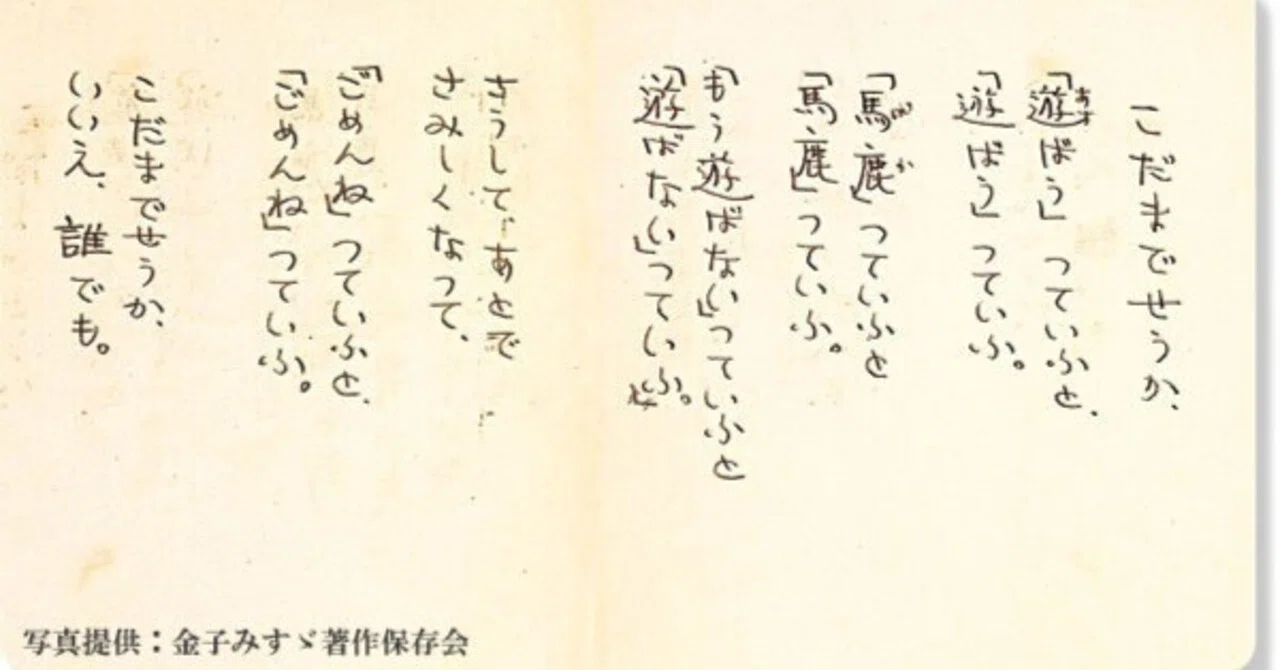 こだまでせうか、
「遊ばう」つていふと、
「遊ばう」つていふ。
「馬鹿」つていふと
「馬鹿」つていふ。
「もう遊ばない」つていふと
「遊ばない」つていふ。
さうして、あとで
さみしくなつて、
「ごめんね」つていふと、
「ごめんね」つていふ。
こだまでせうか、
いいえ、誰でも。
写真提供：金子みすゞ著作保存会